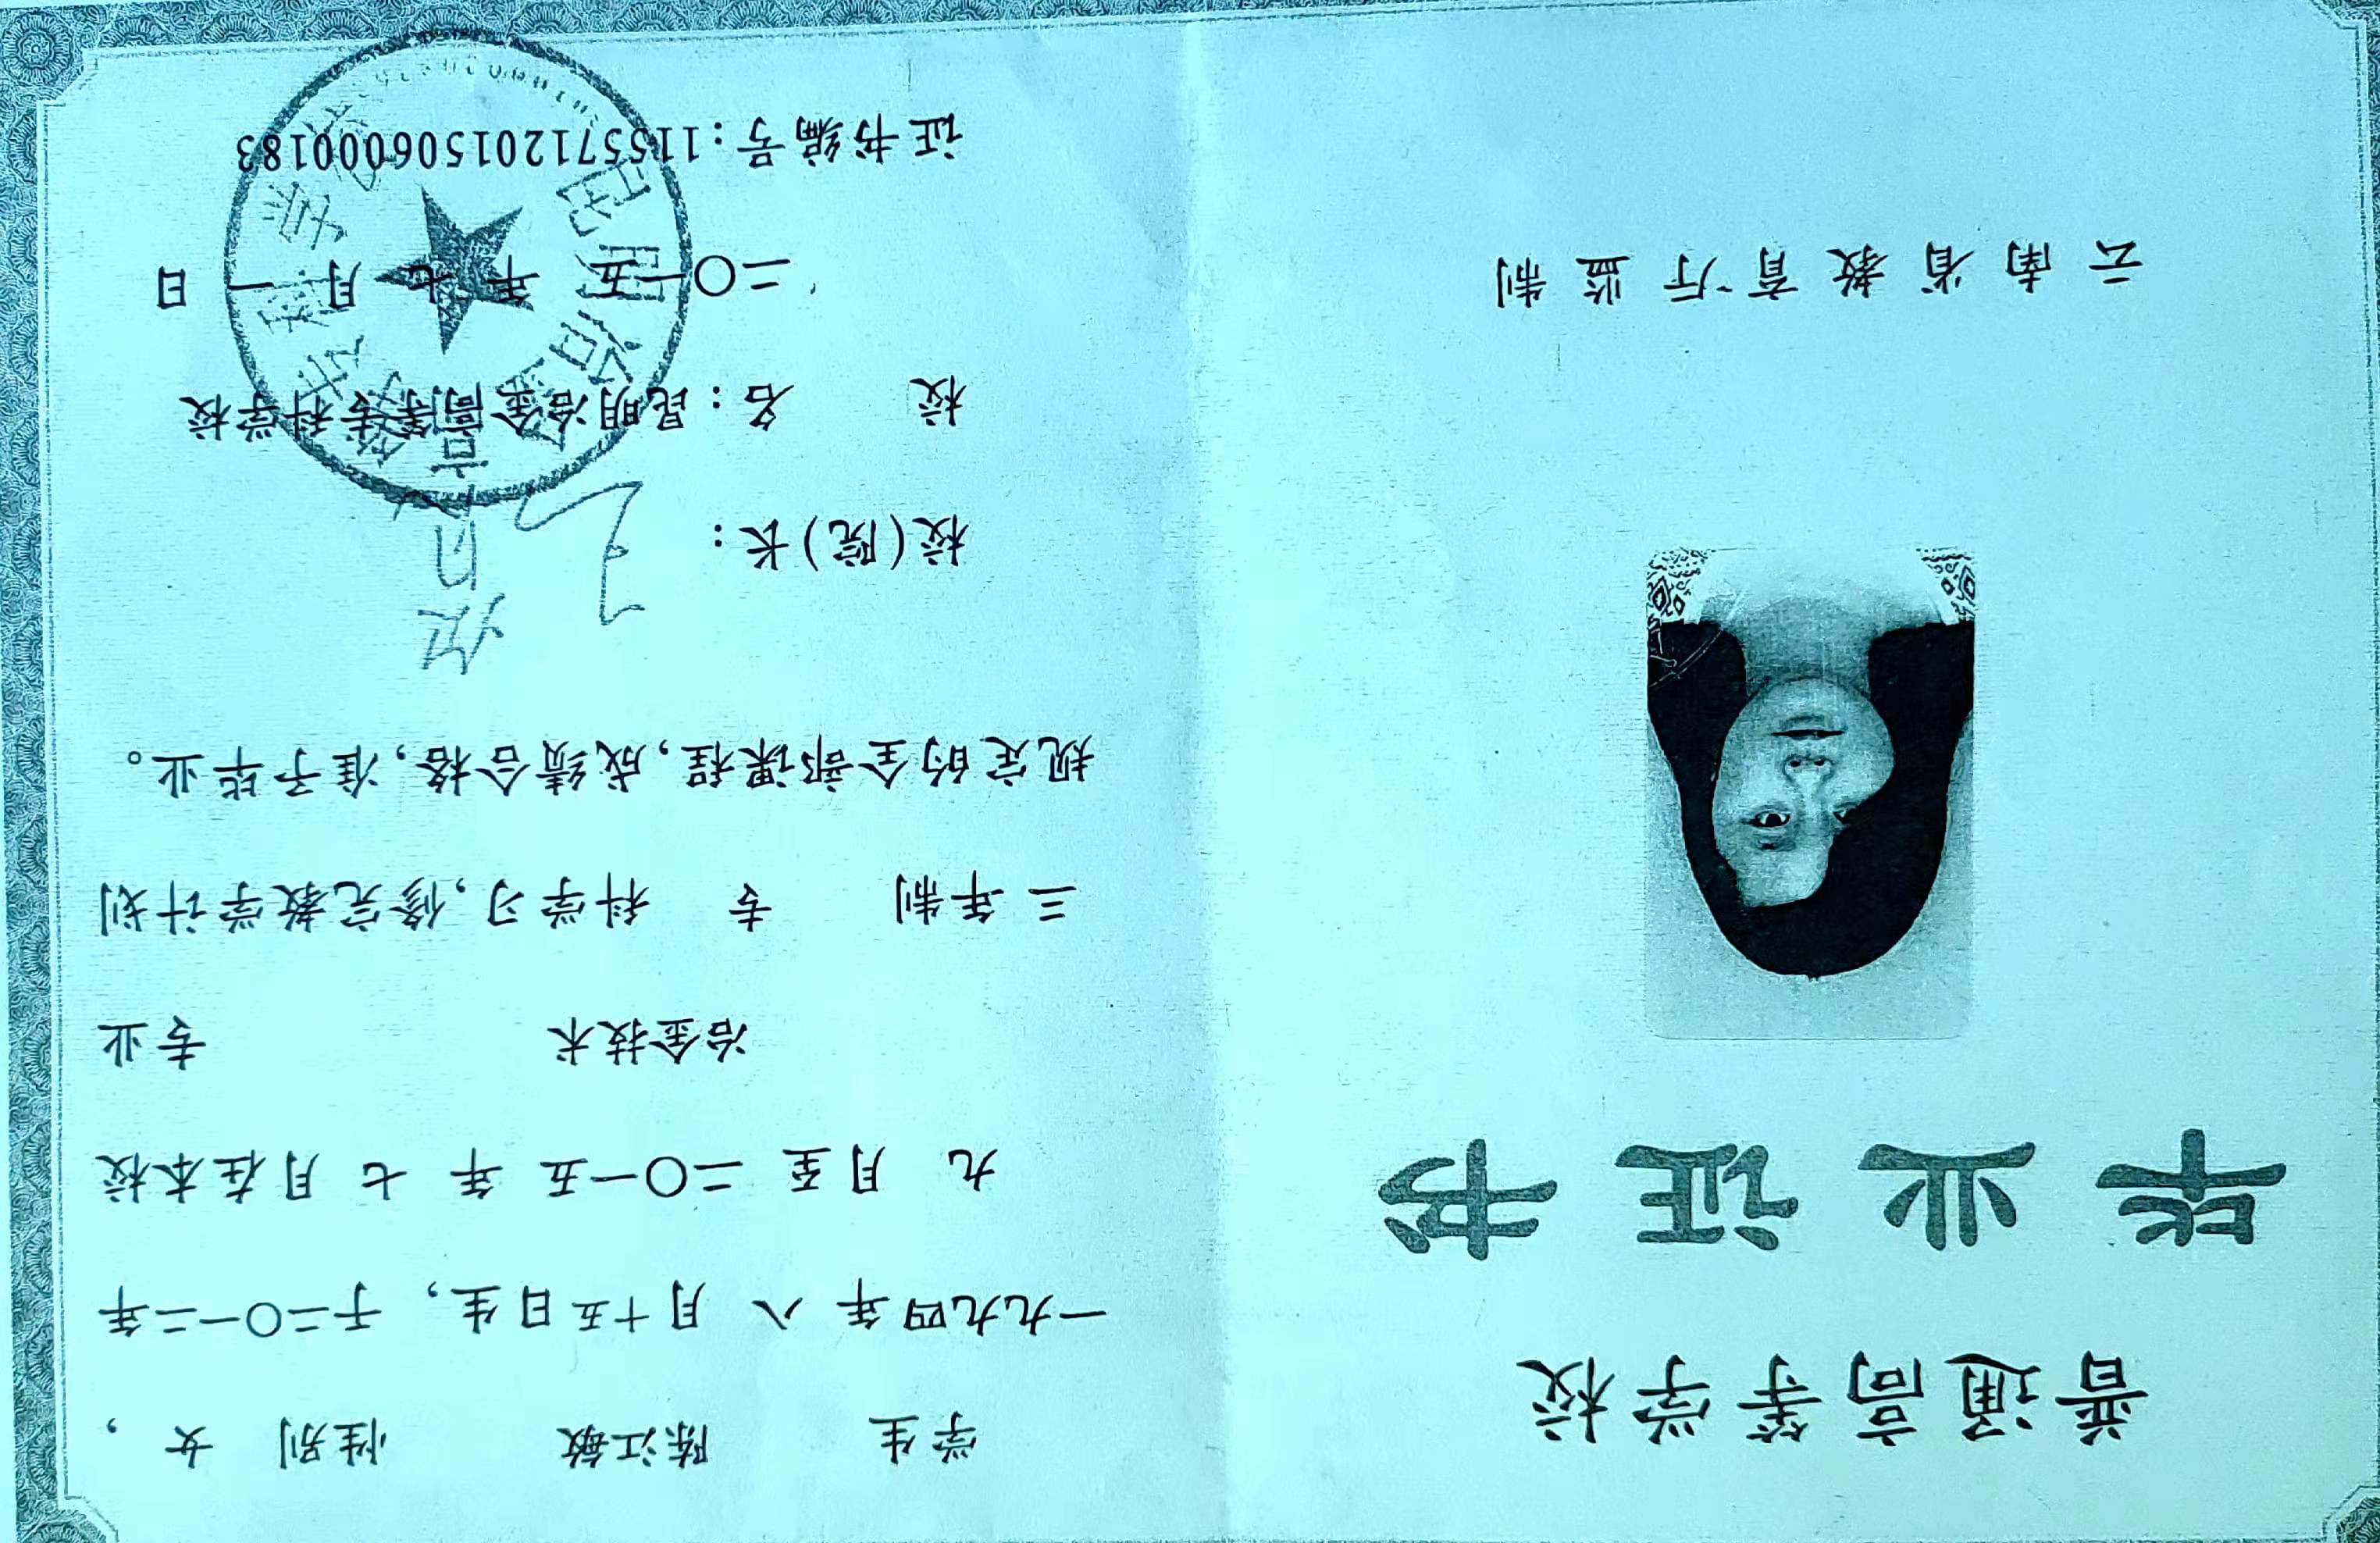 普通高等学校
毕业证书
云南省教育厅监制
学生 陈江敏 性别 女 ，
一九九四年 八 月十五日生，于二〇一二年
九 月至 二〇一五 年 七 月在本校
冶金技术 专业
三年制 专 科学习，修完教学计划
规定的全部课程，成绩合格，准予毕业。
校（院）长：
校 名：昆明冶金高等专科学校
二〇一五 年 七 月 一 日
证书编号：115571201506000183
昆明冶金高等专科学校